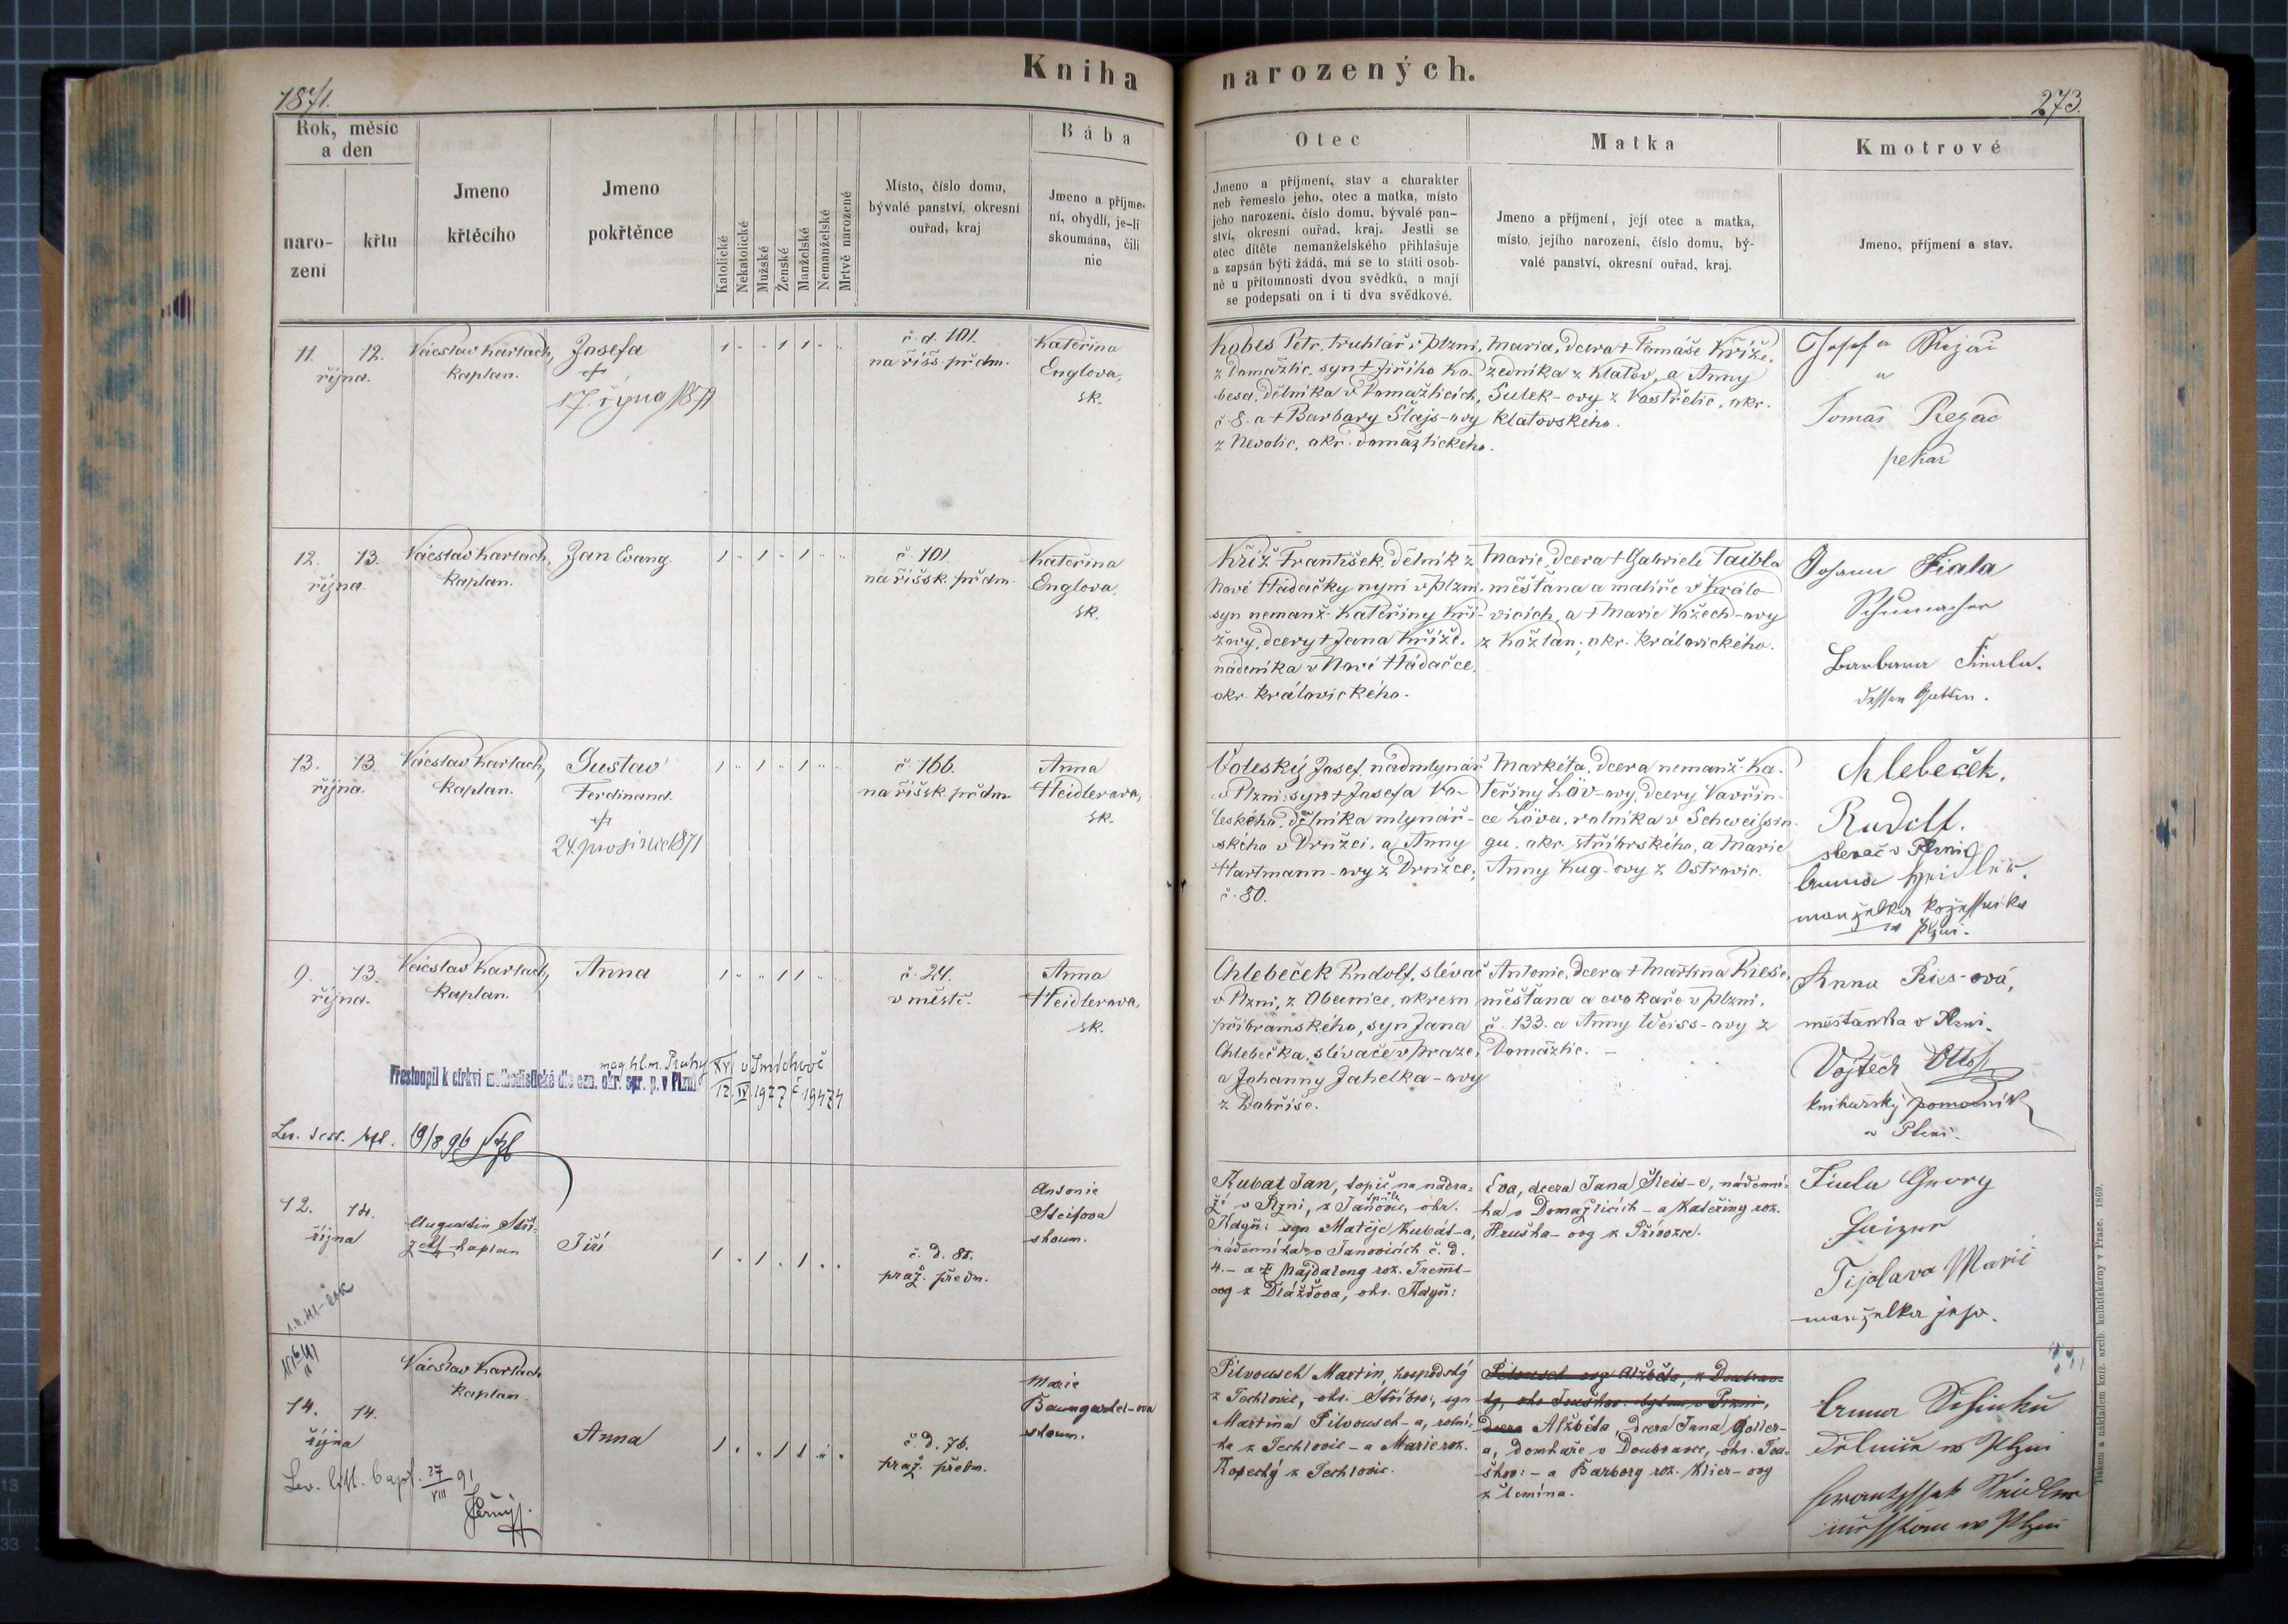 Kniha
narozených.
1871.
273.
Rok, měsíc
a den
naro-
zení
křtu
Jmeno
křtěcího
Jmeno
pokřtěnce
Katolické
Nekatolické
Mužské
Ženské
Manželské
Nemanželské
Mrtvě narozené
Místo, číslo domu,
bývalé panství, okresní
ouřad, kraj
Bába
Jmeno a příjme-
ní, obydlí, je-li
skoumána, čili
nic
Otec
Jmeno a příjmení, stav a charakter
neb řemeslo jeho, otec a matka, místo
jeho narození, číslo domu, bývalé pan-
ství, okresní ouřad, kraj. Jestli se
otec dítěte nemanželského přihlašuje
a zapsán býti žádá, má se to státi osob-
ně u přítomnosti dvou svědků, a mají
se podepsati on i ti dva svědkové.
Matka
Jmeno a příjmení, její otec a matka,
místo jejího narození, číslo domu, bý-
valé panství, okresní ouřad, kraj.
Kmotrové
Jmeno, příjmení a stav.
11. 12.
října.
Vácslav Karlach,
kaplan.
Josefa
17. října 1871
č. d. 101.
na říšs. předm.
Kateřina
Englova,
sk.
Kobes Petr, truhlář v Plzni,
z Domažlic, syn † Jiřího Ko-
besa, dělníka v Domažlicích,
č. 8. a † Barbary Šlajs-ovy
z Nevolic, okr. domažlického.
Maria, dcera † Tomáše Kříže,
zedníka z Klatov, a Anny
Sulek-ovy z Vostřetic, okr.
klatovského.
Josefa
a
Tomáš Rezáč
pekař
12. 13.
října.
Vácslav Karlach,
kaplan.
Jan Evang.
č. 101
na říšsk. předm.
Kateřina
Englova,
sk.
Kříž František, dělník z
Nové Hádačky nyní v Plzni,
syn nemanž. Kateřiny Kří-
žovy, dcery † Jana Kříže,
nádeníka v Nové Hádačce,
okr. královického.
Marie, dcera † Gabriele Taibla
měšťana a malíře v Králo-
vicích, a † Marie Kožech-ovy
z Kožlan, okr. královického.
Johann Fiala
Schumacher
Barbara Fiala.
dessen Gattin.
13. 13
října.
Vácslav Karlach,
kaplan.
Gustav
Ferdinand.
24. prosince 1871
č. 166.
na říšsk. předm
Anna
Heidlerova,
sk.
Voleský Josef, nádmlynář
v Plzni, syn † Josefa Vo-
leského, dělníka mlynář-
ského v Družci, a Anny
Hartmann-ovy z Družce,
č. 80.
Markéta, dcera nemanž. Ka-
teřiny Löv-ovy, dcery Vavřin-
ce Löva, rolníka v Schweissin-
gu, okr. stříbrského, a Marie
Anny Kug-ovy z Ostrovic.
Chlebeček.
Rudolf.
slevač v Plzni
Anna Heidler.
manželka
v Plzni.
9. 13.
října.
Vácslav Karlach,
kaplan.
Anna
č. 24.
v městě.
Anna
Heidlerova,
sk.
Chlebeček Rudolf, slévač
v Plzni, z Obecnice, okresu
příbramského, syn Jana
Chlebečka, slévače v Praze,
a Johanny Jahelka-ovy
z Dobříše.
Antonie, dcera † Martina Riese,
měšťana a cvokaře v Plzni,
č. 133. a Anny Weiss-ovy z
Domažlic. —
Anna Ries-ová,
měšťanka v Plzni.
Vojtěch
knihařský pomocník
v Plzni.
mag. hl. m. Prahy XVI v Smíchově
Přestoupil k církvi methodistické dle ozn. okr. spr. p. v Plzni
12. IV. 1927 č. 19474
19/8 96
12. 14.
října
Augustin
kaplan
Jiří
č. d. 88.
praž. předm.
Antonie
Steifova
skoum.
Kubat Jan, topič na nádra-
ží v Plzni, z Janovic, okr.
Kdyň: syn Matěje Kubát-a,
nádenníka v Janovicích č. d.
4. - a † Majdaleny roz. Treml-
ovy z Dlážďova, okr. Kdyň:
Eva, dcera Jana Šleis-e, nádenní-
ka v Domažlicích - a Kateřiny roz.
Hruška-ovy z Přívozce.
Fiala Georg
Marie
manželka jeho.
14. 14.
října
Vácslav Karlach
kaplan.
Anna
č. d. 76.
praž. předm.
Marie
Baumgartel-ova
skoum.
Lev. litt. bapt. 27/VIII 91
Černý
Pilvousek Martin, hospodský
z Techlovic, okr. Stříbro:, syn
Martina Pilvousek-a, rolní-
ka z Techlovic - a Marie roz.
Kopecký z Techlovic.
Alžběta, dcera Jana Goller-
a, domkaře v Doubravce, okr. Tou-
škov: - a Barbory roz. Klier-ovy
z Úlemína.
Anna
v Plzni
v Plzni
Tiskem a nákladem kníž. arcib. knihtiskárny v Praze. 1869.